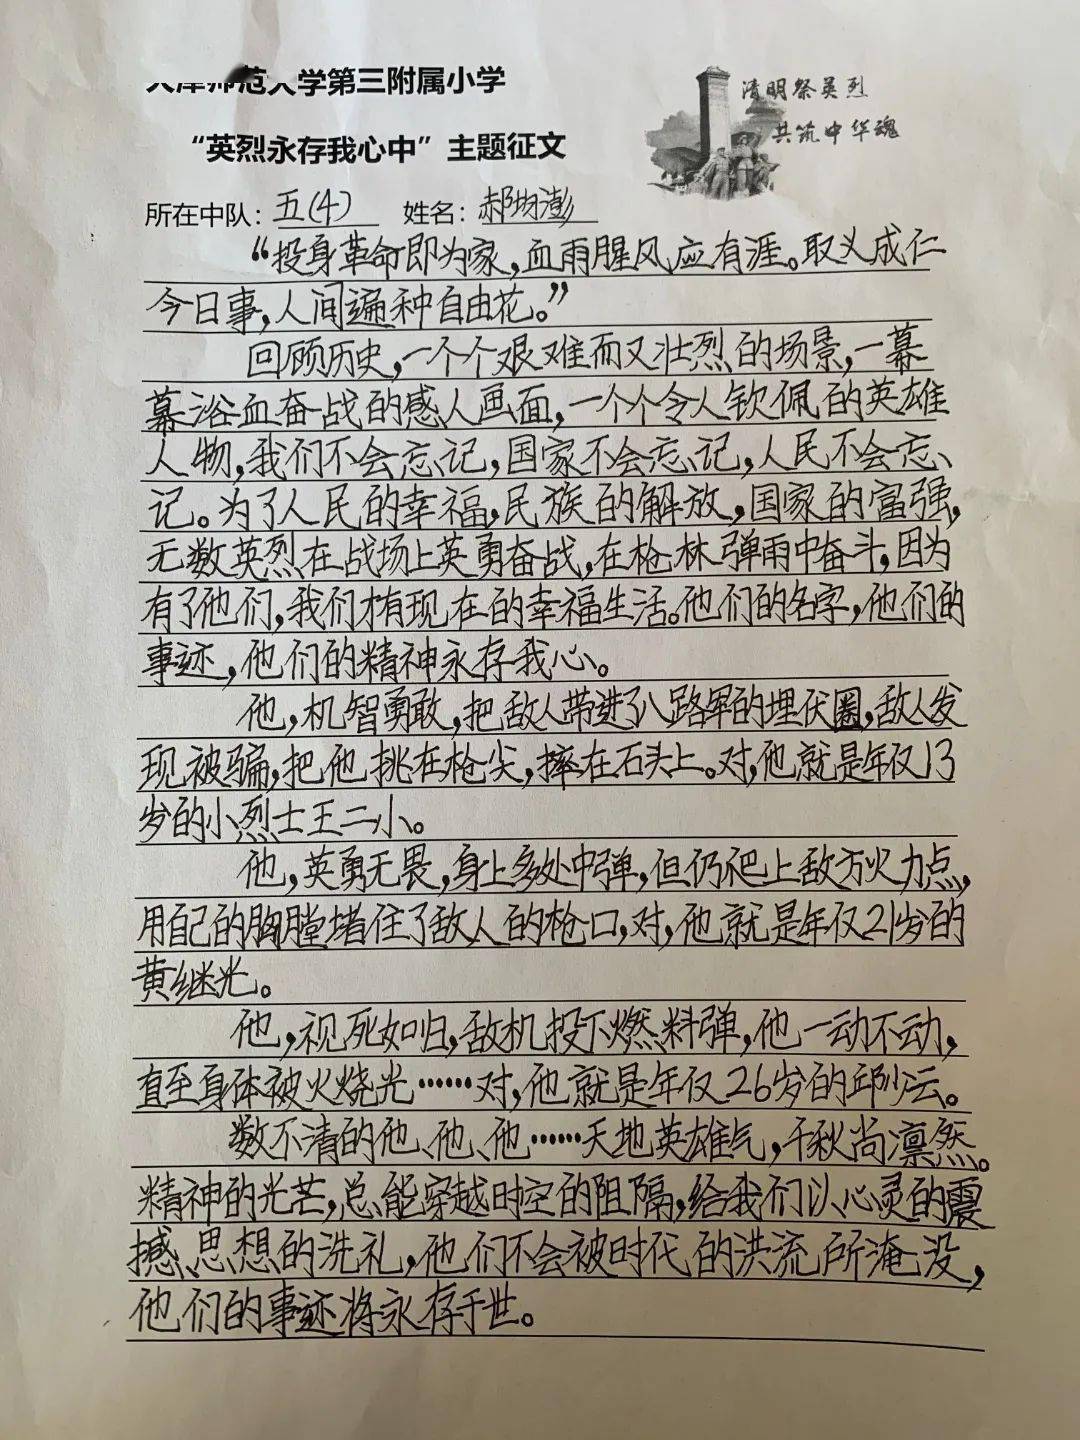 天津师范大学第三附属小学
清明祭英烈
共筑中华魂
“英烈永存我心中”主题征文
所在中队：五(4) 姓名：郝均澎
“投身革命即为家，血雨腥风应有涯。取义成仁
今日事，人间遍种自由花。”
回顾历史，一个个艰难而又壮烈的场景，一幕
幕浴血奋战的感人画面，一个个令人钦佩的英雄
人物，我们不会忘记，国家不会忘记，人民不会忘
记。为了人民的幸福，民族的解放，国家的富强，
无数英烈在战场上英勇奋战，在枪林弹雨中奋斗，因为
有了他们，我们才有现在的幸福生活。他们的名字，他们的
事迹，他们的精神永存我心。
他，机智勇敢，把敌人带进了八路军的埋伏圈，敌人发
现被骗，把他挑在枪尖，摔在石头上。对，他就是年仅13
岁的小烈士王二小。
他，英勇无畏，身上多处中弹，但仍爬上敌方火力点，
用自己的胸膛堵住了敌人的枪口，对，他就是年仅21岁的
黄继光。
他，视死如归，敌机投下燃料弹，他一动不动，
直至身体被火烧光……对，他就是年仅26岁的邱少云。
数不清的他、他、他……天地英雄气，千秋尚凛然。
精神的光芒，总能穿越时空的阻隔，给我们以心灵的震
撼、思想的洗礼，他们不会被时代的洪流所淹没，
他们的事迹将永存于世。